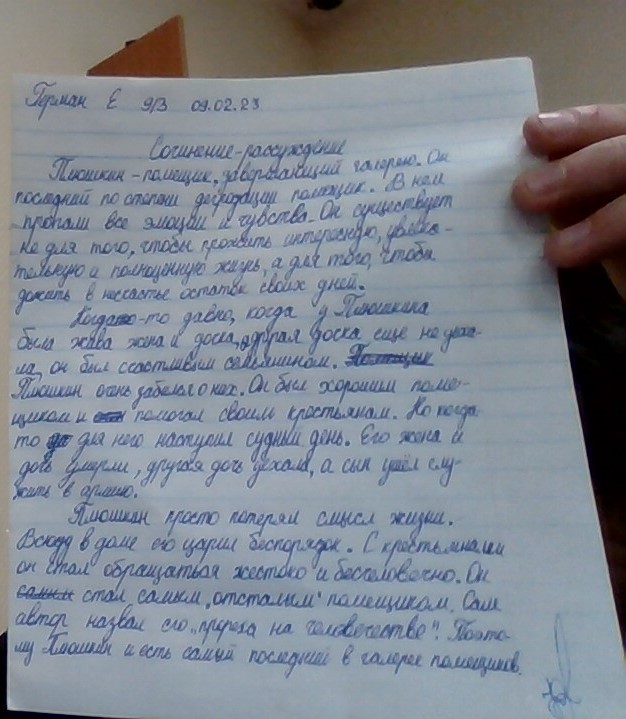 Герман Е 9/3 09.02.23
Сочинение-рассуждение
Плюшкин - помещик, завершающий галерею. Он
последний по степени деградации помещик. В нём
пропали все эмоции и чувства. Он существует
не для того, чтобы прожить интересную, увлека-
тельную и полноценную жизнь, а для того, чтобы
дожить в несчастье остаток своих дней.
Когдато-то давно, когда у Плюшкина
была жива жена и доска, а другая доска еще не уеха-
ла, он был счастливым семьянином. Помещик
Плюшкин очень заботился о них. Он был хорошим поме-
щиком и помогал своим крестьянам. Но когда
то для него наступил судный день. Его жена и
дочь умерли, другая дочь уехала, а сын ушёл слу-
жить в армию.
Плюшкин просто потерял смысл жизни.
Всюду в доме его царил беспорядок. С крестьянами
он стал обращаться жестоко и бесчеловечно. Он
самым стал самым „отсталым" помещиком. Сам
автор назвал его „прореха на человечестве". Поэто-
му Плюшкин и есть самый последний в галерее помещиков.